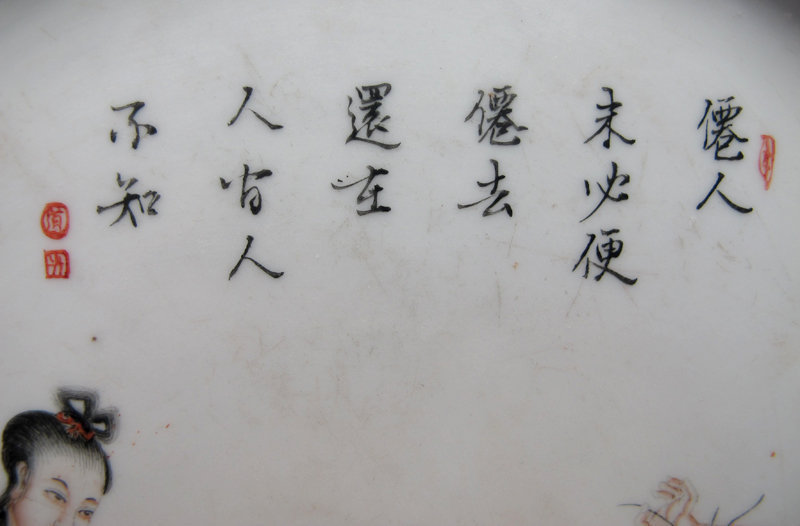 僊人
未必便
僊去
還在
人间人
不知